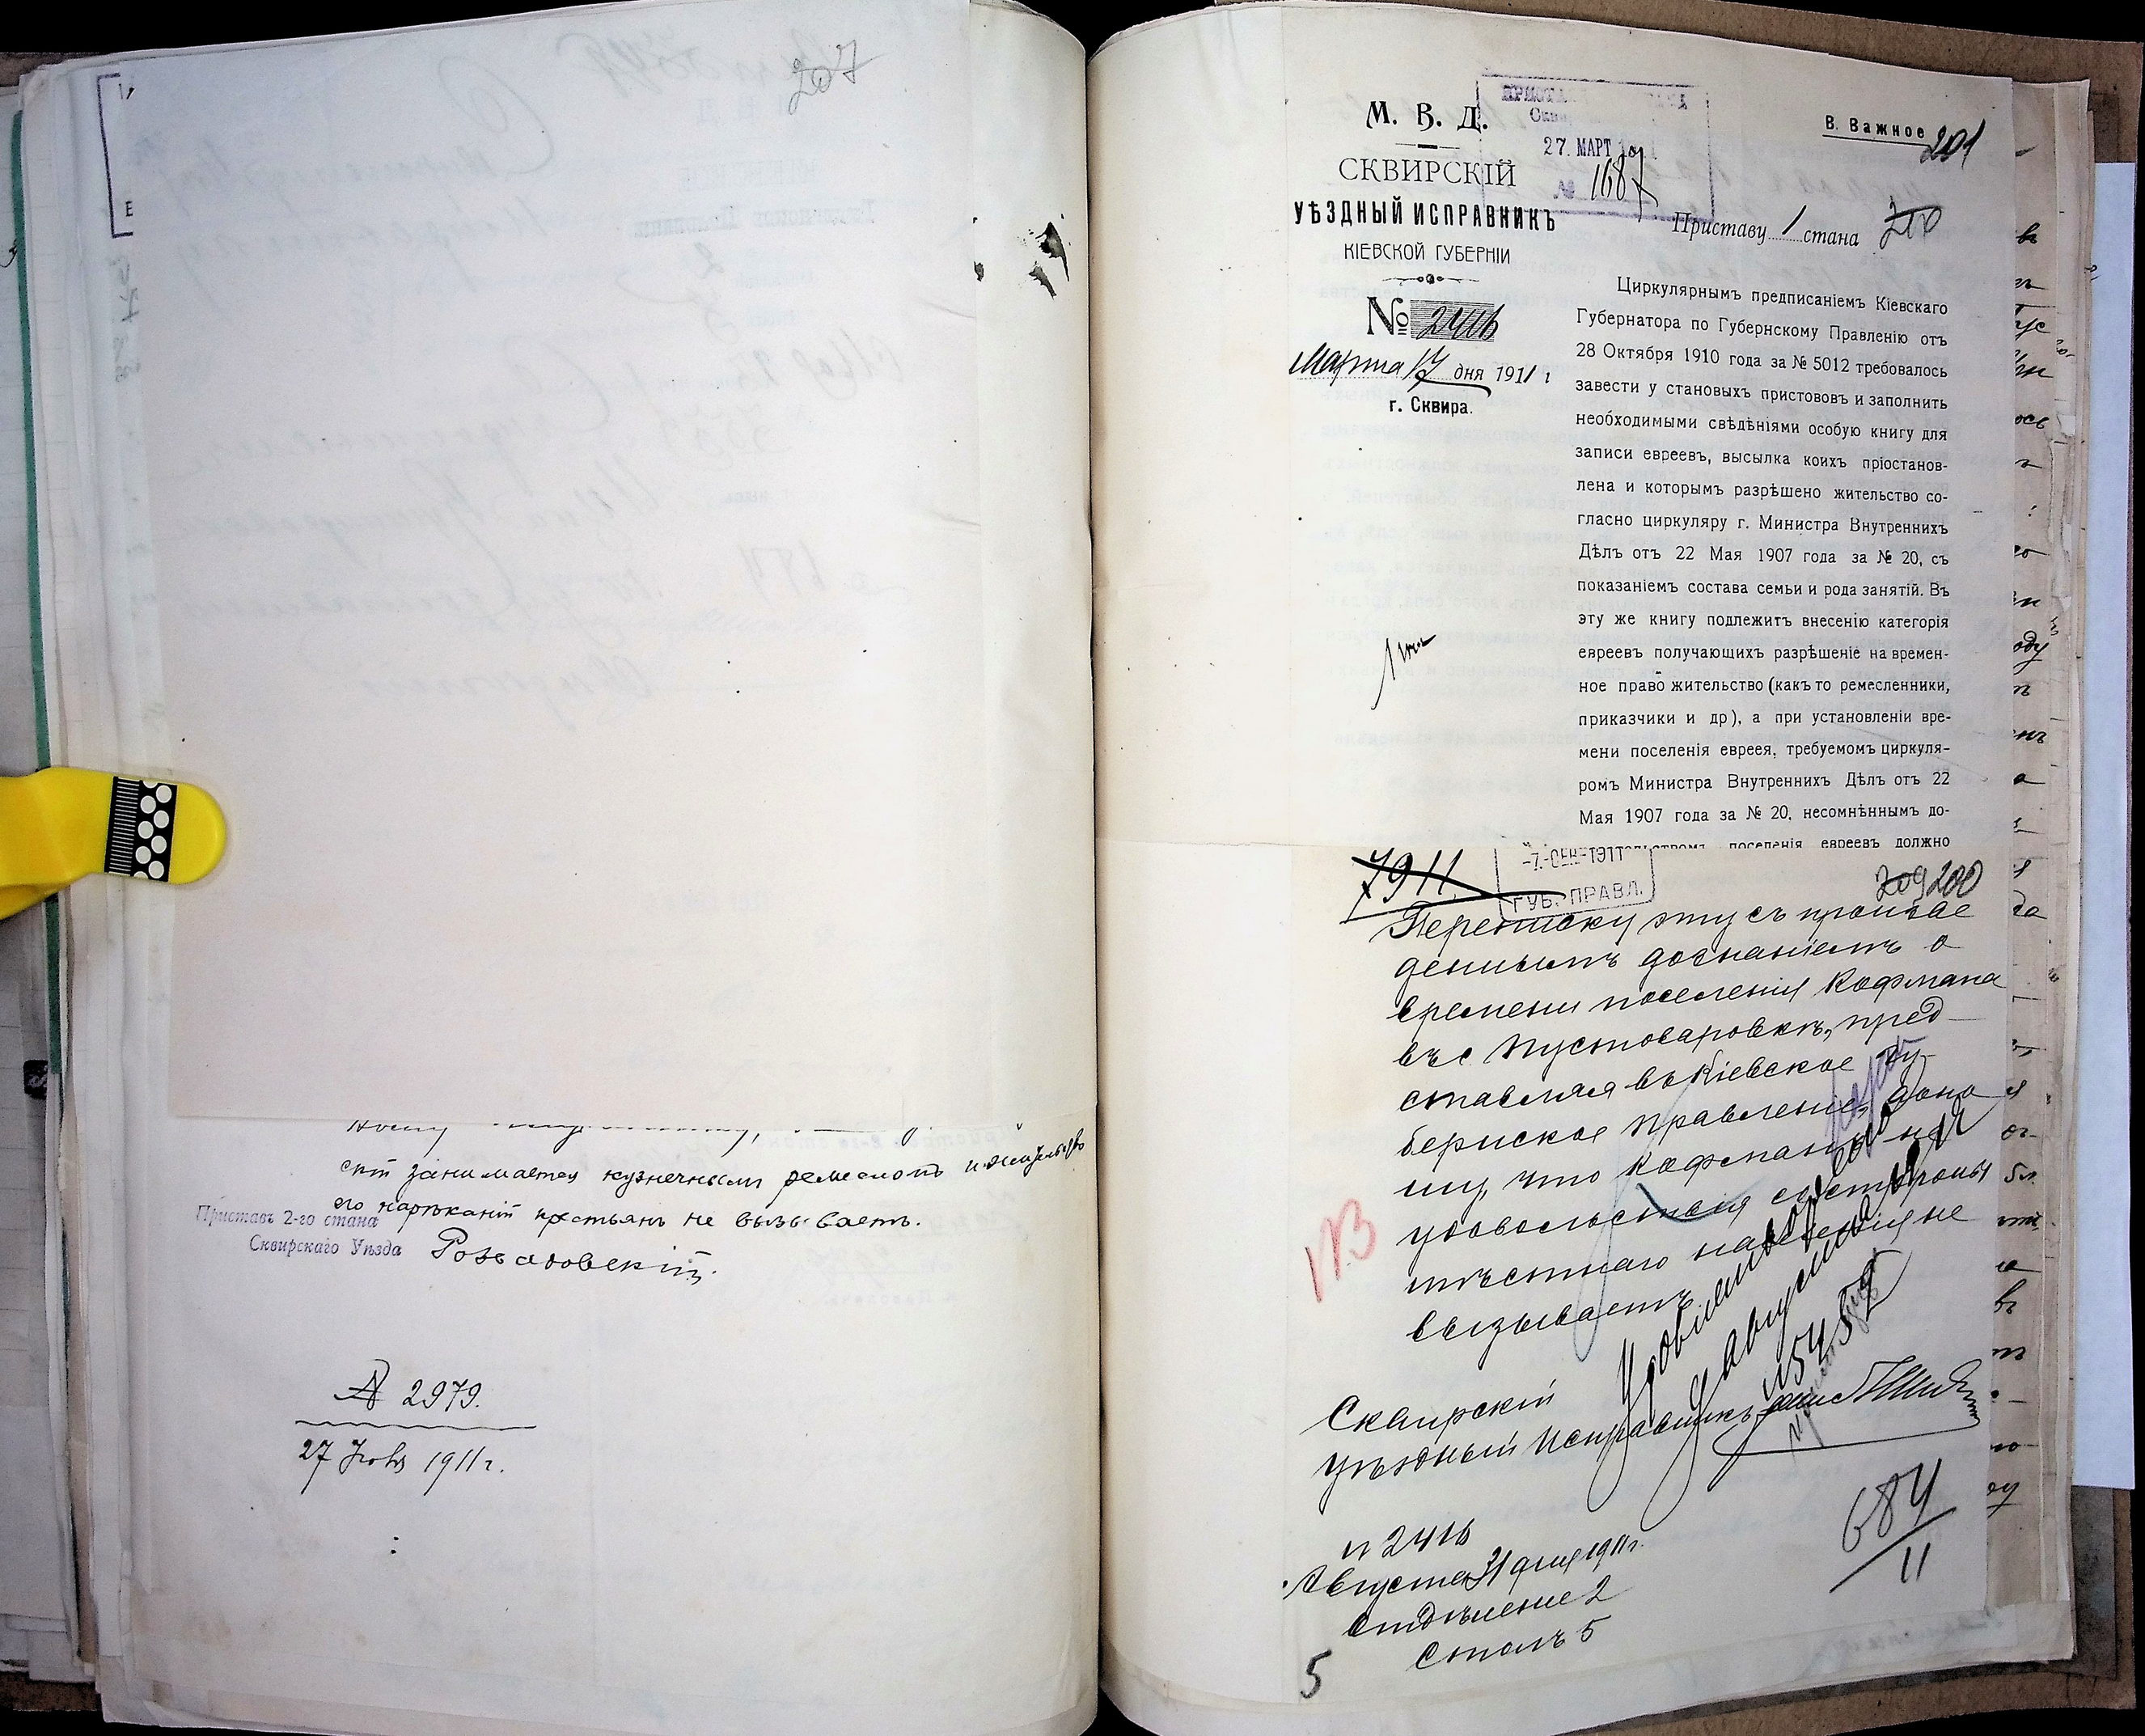 207
скт занимается кузнечнымъ ремесломъ и жительство
его нареканій крестьянъ не вызываетъ.
Приставъ 2-го стана
Сквирскаго Уѣзда
№ 2979.
27 1911 г.
М. В. Д.
СКВИРСКІЙ
УѢЗДНЫЙ ИСПРАВНИКЪ
КІЕВСКОЙ ГУБЕРНІИ
№ 2416
Марта 17 дня 1911 г
г. Сквира.
27. МАРТ
№ 1687
В. Важное
201
Приставу 1 стана
210
Циркулярнымъ предписаніемъ Кіевскаго
Губернатора по Губернскому Правленію отъ
28 Октября 1910 года за № 5012 требовалось
завести у становыхъ пристововъ и заполнить
необходимыми свѣдѣніями особую книгу для
записи евреевъ, высылка коихъ пріостанов-
лена и которымъ разрѣшено жительство со-
гласно циркуляру г. Министра Внутреннихъ
Дѣлъ отъ 22 Мая 1907 года за № 20, съ
показаніемъ состава семьи и рода занятій. Въ
эту же книгу подлежитъ внесенію категорія
евреевъ получающихъ разрѣшеніе на времен-
ное право жительство (какъ то ремесленники,
приказчики и др), а при установленіи вре-
мени поселенія еврея, требуемомъ циркуля-
ромъ Министра Внутреннихъ Дѣлъ отъ 22
Мая 1907 года за № 20, несомнѣннымъ до-
поселенія евреевъ должно
7911
-7.-СЕН-1911
ГУБ. ПРАВЛ.
209 200
Переписку эту съ произве
деннымъ дознаніемъ о
времени поселенія Кофмана
въ с Пустоваровкѣ, пред-
ставляя въ Кіевское Гу-
бернское Правленіе, доно
шу, что Кофманъ не
удовольствія со стороны
мѣстнаго населенія не
вызываетъ.
Сквирскій
Уѣздный Исправникъ
684
11
№ 2416
Августа 31 дня 1911 г.
Отдѣленіе 2
Столъ 5
5